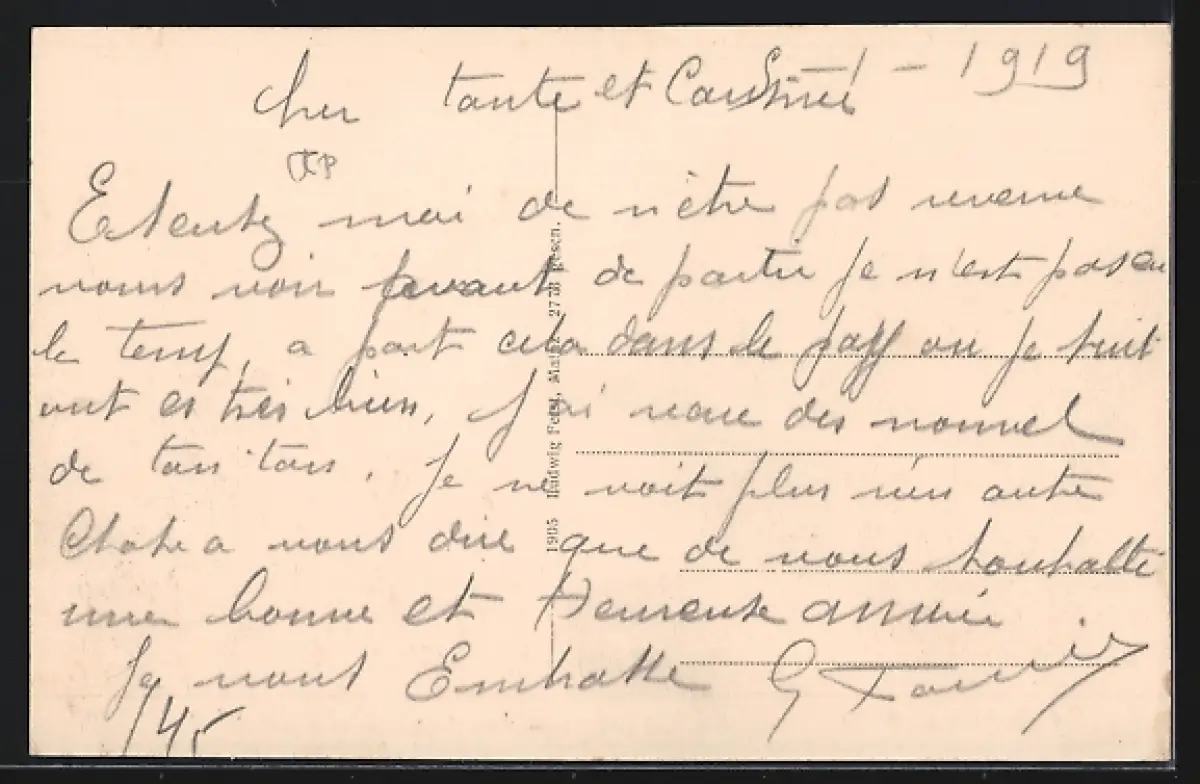 5 - 1 - 1919
Cher tante et Cousine
Exscusez moi de n'être pas revenue
vous voir avant de partir je n'est pas eu
le temp, a part cela dans le paff ou je suit
ont es très bien, J'ai reçue des nouvel
de ton ton. Je ne voit plus rien autre
Chose a vous dire que de vous souhaitté
une bonne et Heureuse année
Je vous Embrasse G
145
1905 Ludwig Feist, Mainz